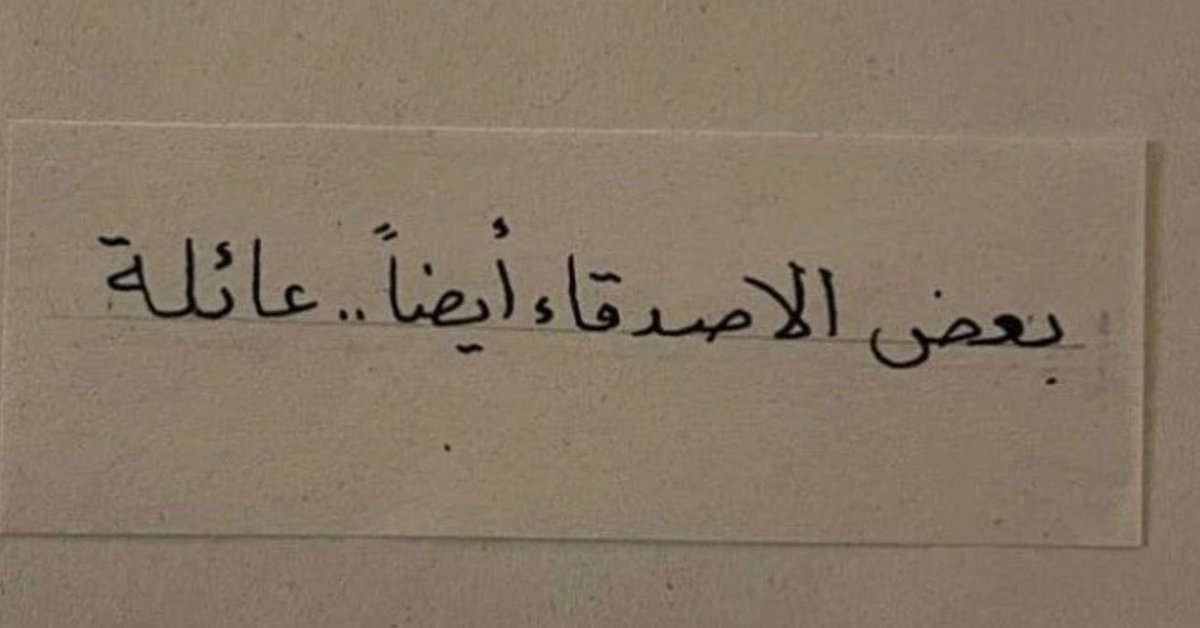 بعض الاصدقاء أيضاً .. عائلة